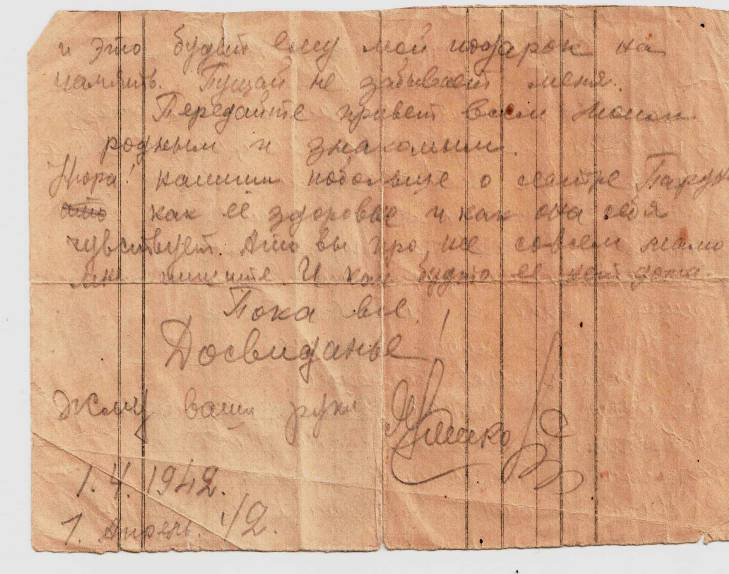 и это будет ему мой подарок на
память. Пущай не забывает меня.
Передайте привет всем моим
родным и знакомым.
Нюра! напиши побольше о сестре
как ее здоровье и как она себя
чувствует. Ато вы про нее совсем мало
мне пишите. И как будто ее нет дома.
Пока все
Досвиданье!
Жму ваши руки
1.4.1942.
1. Апрель. 42.